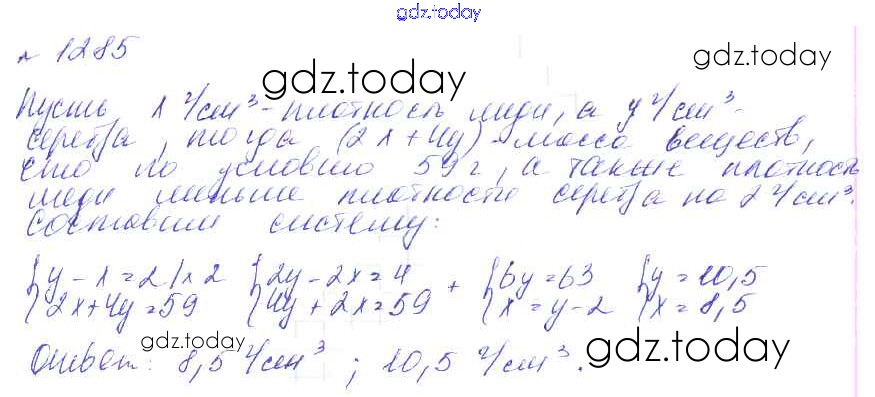 gdz.today
№ 1285
gdz.today
Пусть x г/см³ - плотность меди, а y г/см³ -
серебра, тогда (2x+4y) - масса веществ,
что по условию 59 г, а также плотность
меди меньше плотности серебра на 2 г/см³.
Составим систему:
{y - x = 2 | x 2 {2y - 2x = 4 + {6y = 63 {y = 10,5
{2x + 4y = 59 {4y + 2x = 59 {x = y - 2 {x = 8,5
gdz.today gdz.today
Ответ: 8,5 г/см³ ; 10,5 г/см³.